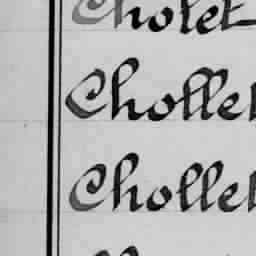 Cholet
Chollet
Chollet